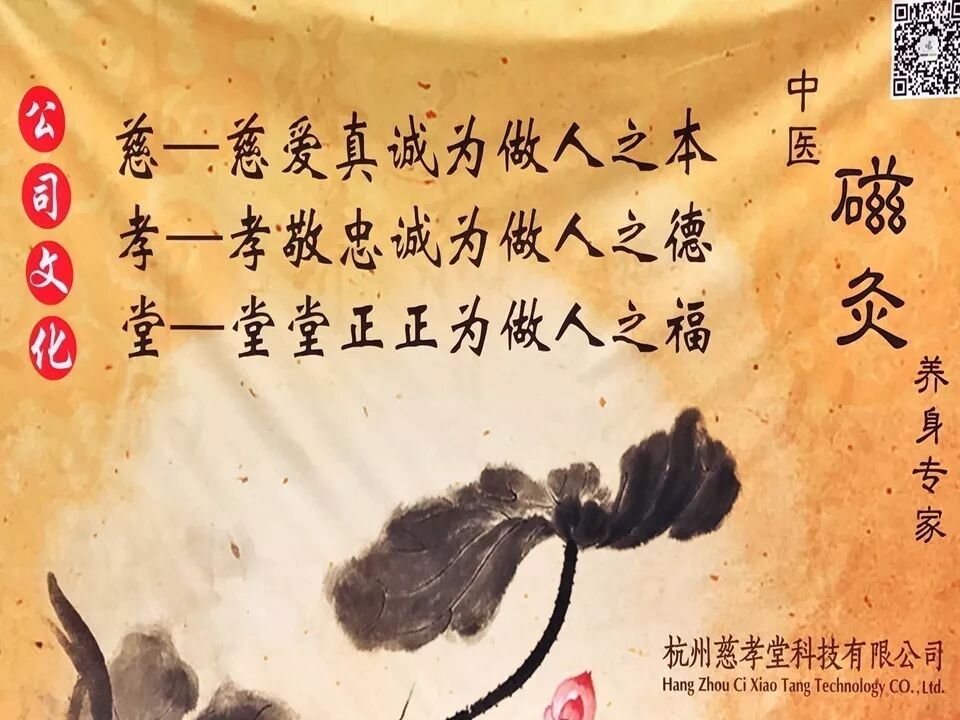 公司文化
慈—慈爱真诚为做人之本
孝—孝敬忠诚为做人之德
堂—堂堂正正为做人之福
中医
磁灸
养身专家
杭州慈孝堂科技有限公司
Hang Zhou Ci Xiao Tang Technology CO.,Ltd.